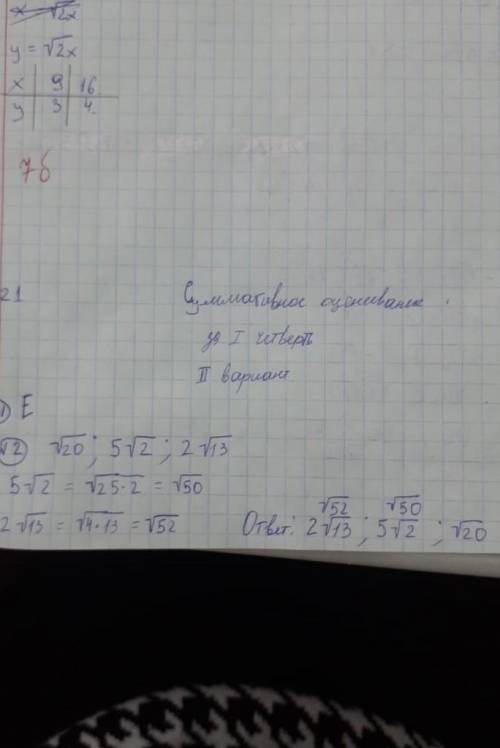 y = √2x
x | 9 | 16
y | 3 | 4
7б
21
Суммативное оценивание
за I четверть
II вариант
1) E
√2) √20 ; 5√2 ; 2√13
5√2 = √25·2 = √50
2√13 = √4·13 = √52
√52 √50
Ответ: 2√13 ; 5√2 ; √20